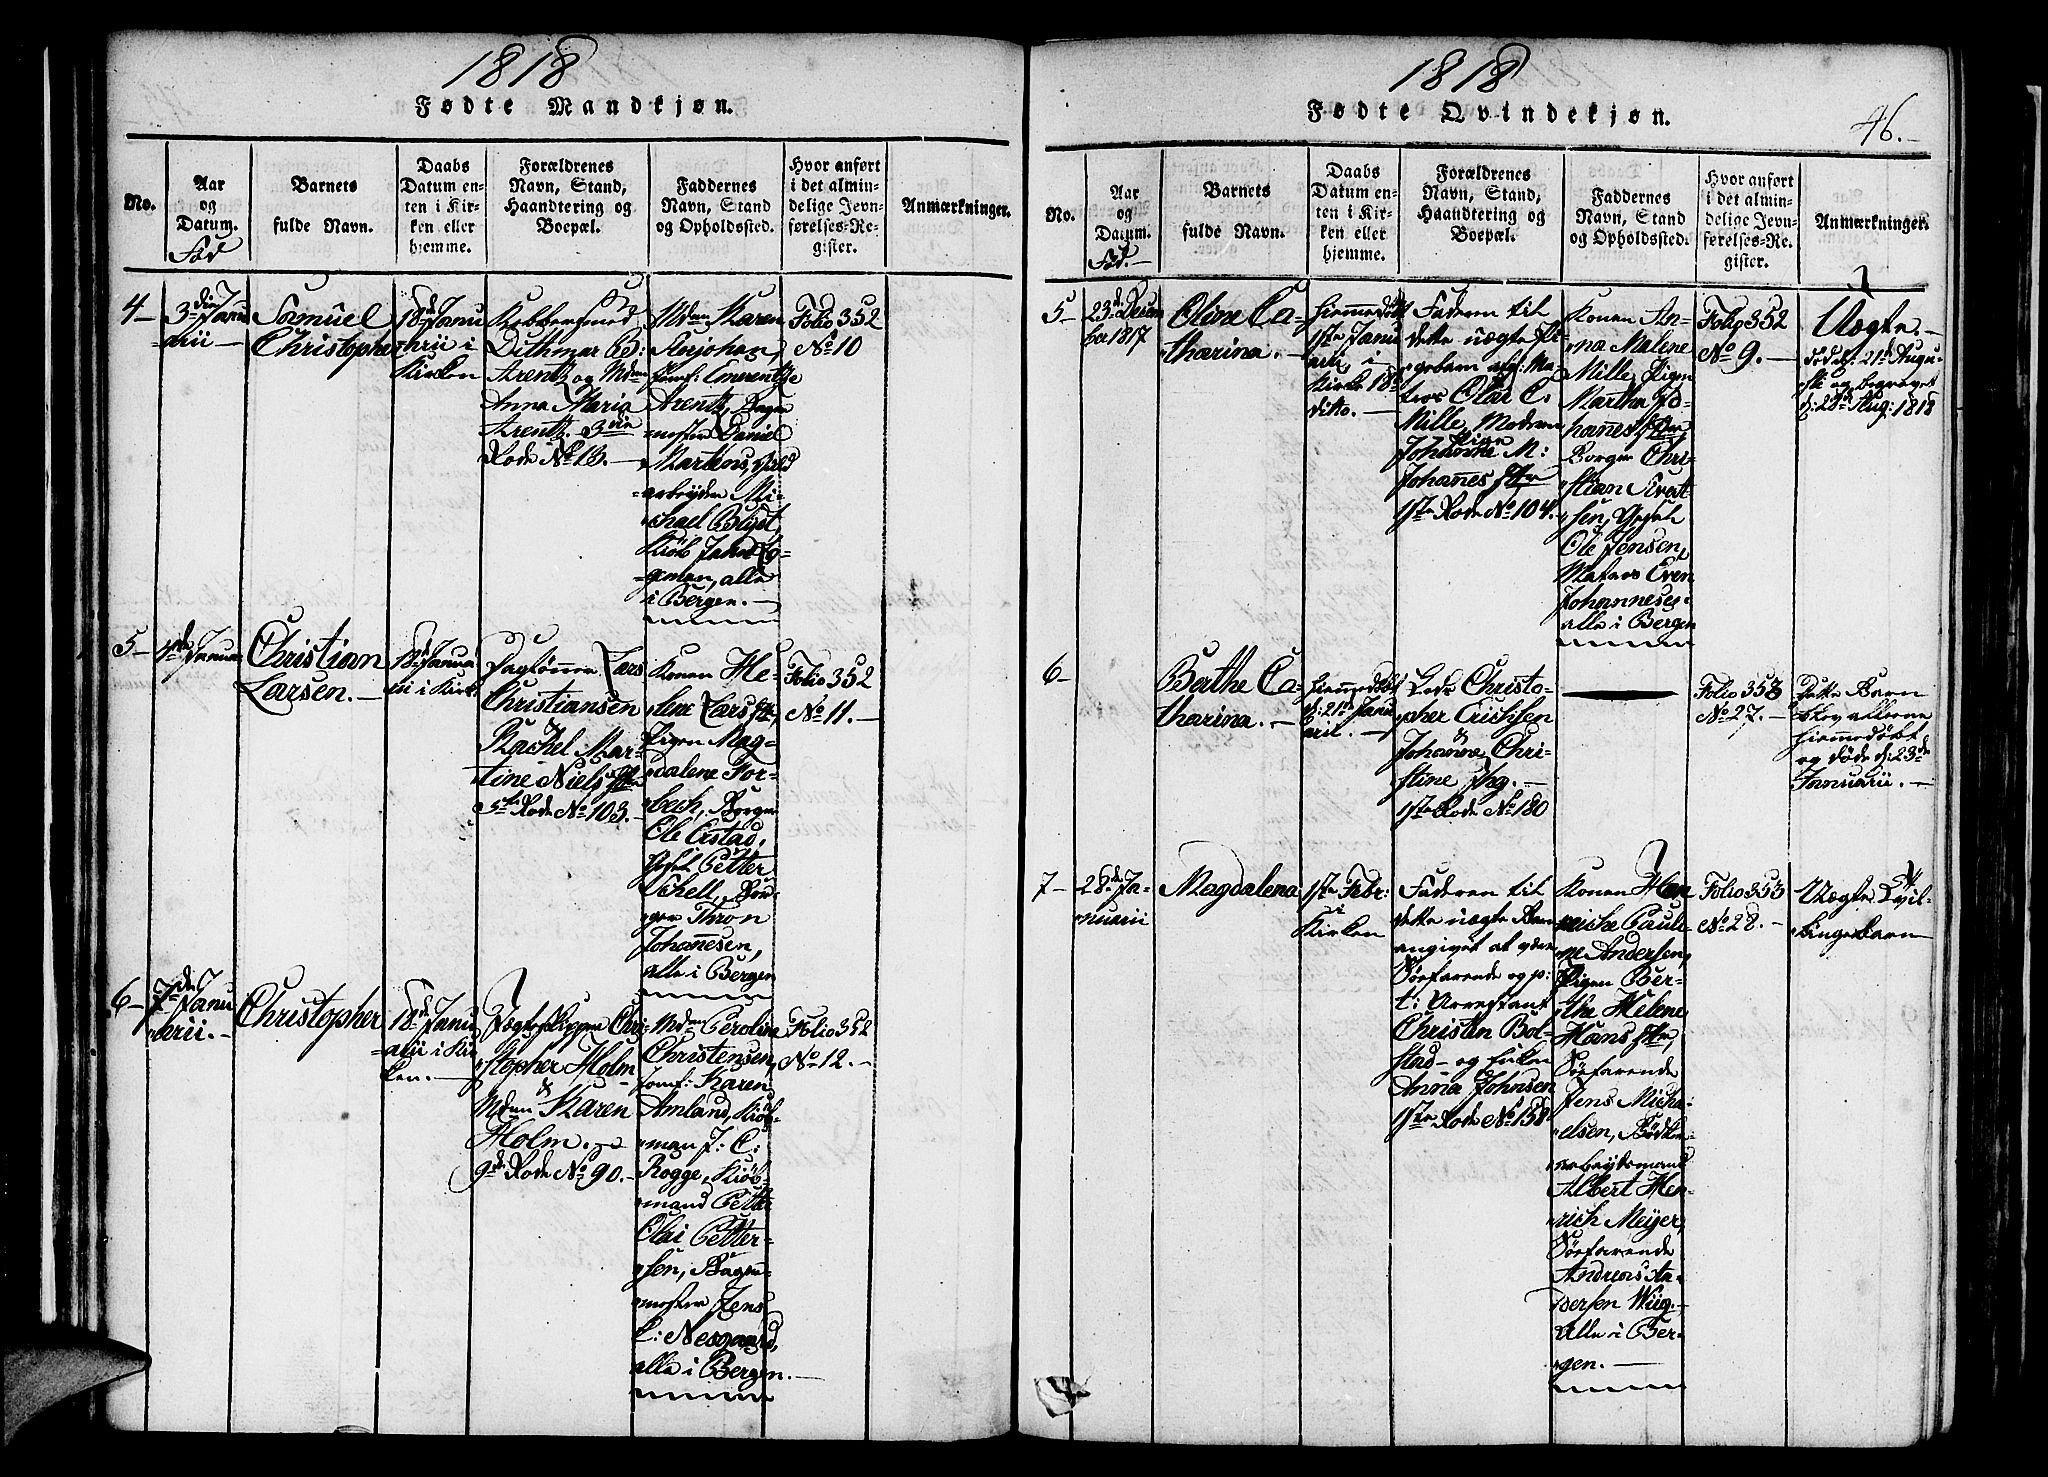 1818
Fødte Mandkjøn.
No.
Aar
og
Datum.
Fød
Barnets
fulde Navn.
Daabs
Datum en-
ten i Kir-
ken eller
hjemme.
Forældrenes
Navn, Stand,
Haandtering og
Boepæl.
Faddernes
Navn, Stand
og Opholdssted.
Hvor anført
i det almin-
delige Jevn-
førelses-Re-
gister.
Anmærkninger.
4
3die Janu
arii
Samuel
Christopher
18de Janu
arii i
Kirken
Kobbersmed
Dithmar B:
Arentz og Mdm
Anna Maria
Arentz. 3die
Rode No 16.
Mdm Karen
Jomf: Emerentze
Arentz, Bager
mester Daniel
Martens, Guld
arbeyder Mi-
chael Blÿst,
alle
i Bergen.
Folio 352
No 10
5
4de Januar
Christian
Larsen.
18de Janua
rii i Kirk
Daglønner Lars
Christiansen
&
Rachel Mar-
tine Niels dtr
5te Rode No 103.
Konen He-
lene Lars dtr,
Pigen Mag-
dalene For-
bech, Borger
Ole Erstad,
Gesel Petter
Schell, Bor-
ger Thron
Johannesen,
alle i Bergen
Folio 352
No 11.
6
7de Janu
arii.
Christopher
18de Janu
arii i Kir
ken.
Jagtskipper Chri-
stopher Holm
&
Mdm Karen
Holm.
9de Rode No 90.
Mdm Caroline
Christensen,
Jomf: Karen
Amland, Kiøb-
man J: C:
Rogge, Kiøb-
mand Petter
Olai Petter-
sen, Bager-
mester Jens
L: Nesgaard,
alle i Bergen.
Folio 352
No 12.
1818
Fødte Qvindekjøn.
46.
No.
Aar
og
Datum.
Fød.
Barnets
fulde Navn.
Daabs
Datum en-
ten i Kir-
ken eller
hjemme.
Forældrenes
Navn, Stand,
Haandtering og
Boepæl.
Faddernes
Navn, Stand
og Opholdssted.
Hvor anført
i det almin-
delige Jevn-
førelses-Re-
gister.
Anmærkninger.
5
23de Decem
ber 1817
Oline Ca-
tharina.
Hiemmedøbt
1ste Janu
arii, i
Kirke 18de
ditto.
Faderen til
dette uægte Pi-
gebarn afg: Ma-
tros Olai C.
Mille, Moderen
Pige
Johanne M:
Johannes dtr
1ste Rode No 104.
Konen An-
na Malene
Mille, Pigen
Martha Jo-
hannes dtr
Borger Chri-
stian Evert
sen, Gesel
Ole Jensen,
Matros Even
Johannesen
alle i Bergen
Folio 352
No 9.
Uægte.
døde d: 21de Augu-
sti og begravet
d: 25de Aug: 1818
6
Berthe Ca-
tharina.
Hiemmedøbt
d: 21de Janu
arii.
Christo-
pher Erichsen
&
Johanne Chri-
stine
1ste Rode No 180
Folio 353
No 27.
Dette Barn
blev allene
hiemmedøbt
og døde d: 23de
Januarii.
7
28de Ja-
nuarii
Magdalena
1ste Febr:
i
Kirken
Faderen til
dette uægte Barn
angivet at være
Søefarende og p:
t: Arrestant
Christen Bol-
stad og Enken
Anna Johnsen
1ste Rode No 158
Konen Hen
riche Pauli-
ne Andersen,
Pigen Ber-
the Helene
Hans dtr,
Søefarende
Jens Micha-
elsen, Bødker-
arbeydsmand
Albert Hen-
rich Meÿer,
Søefarende
Andreas An-
dersen Wiig,
alle i Ber-
gen.
Folio 353
No 28.
Uægte Tvil-
lingebarn